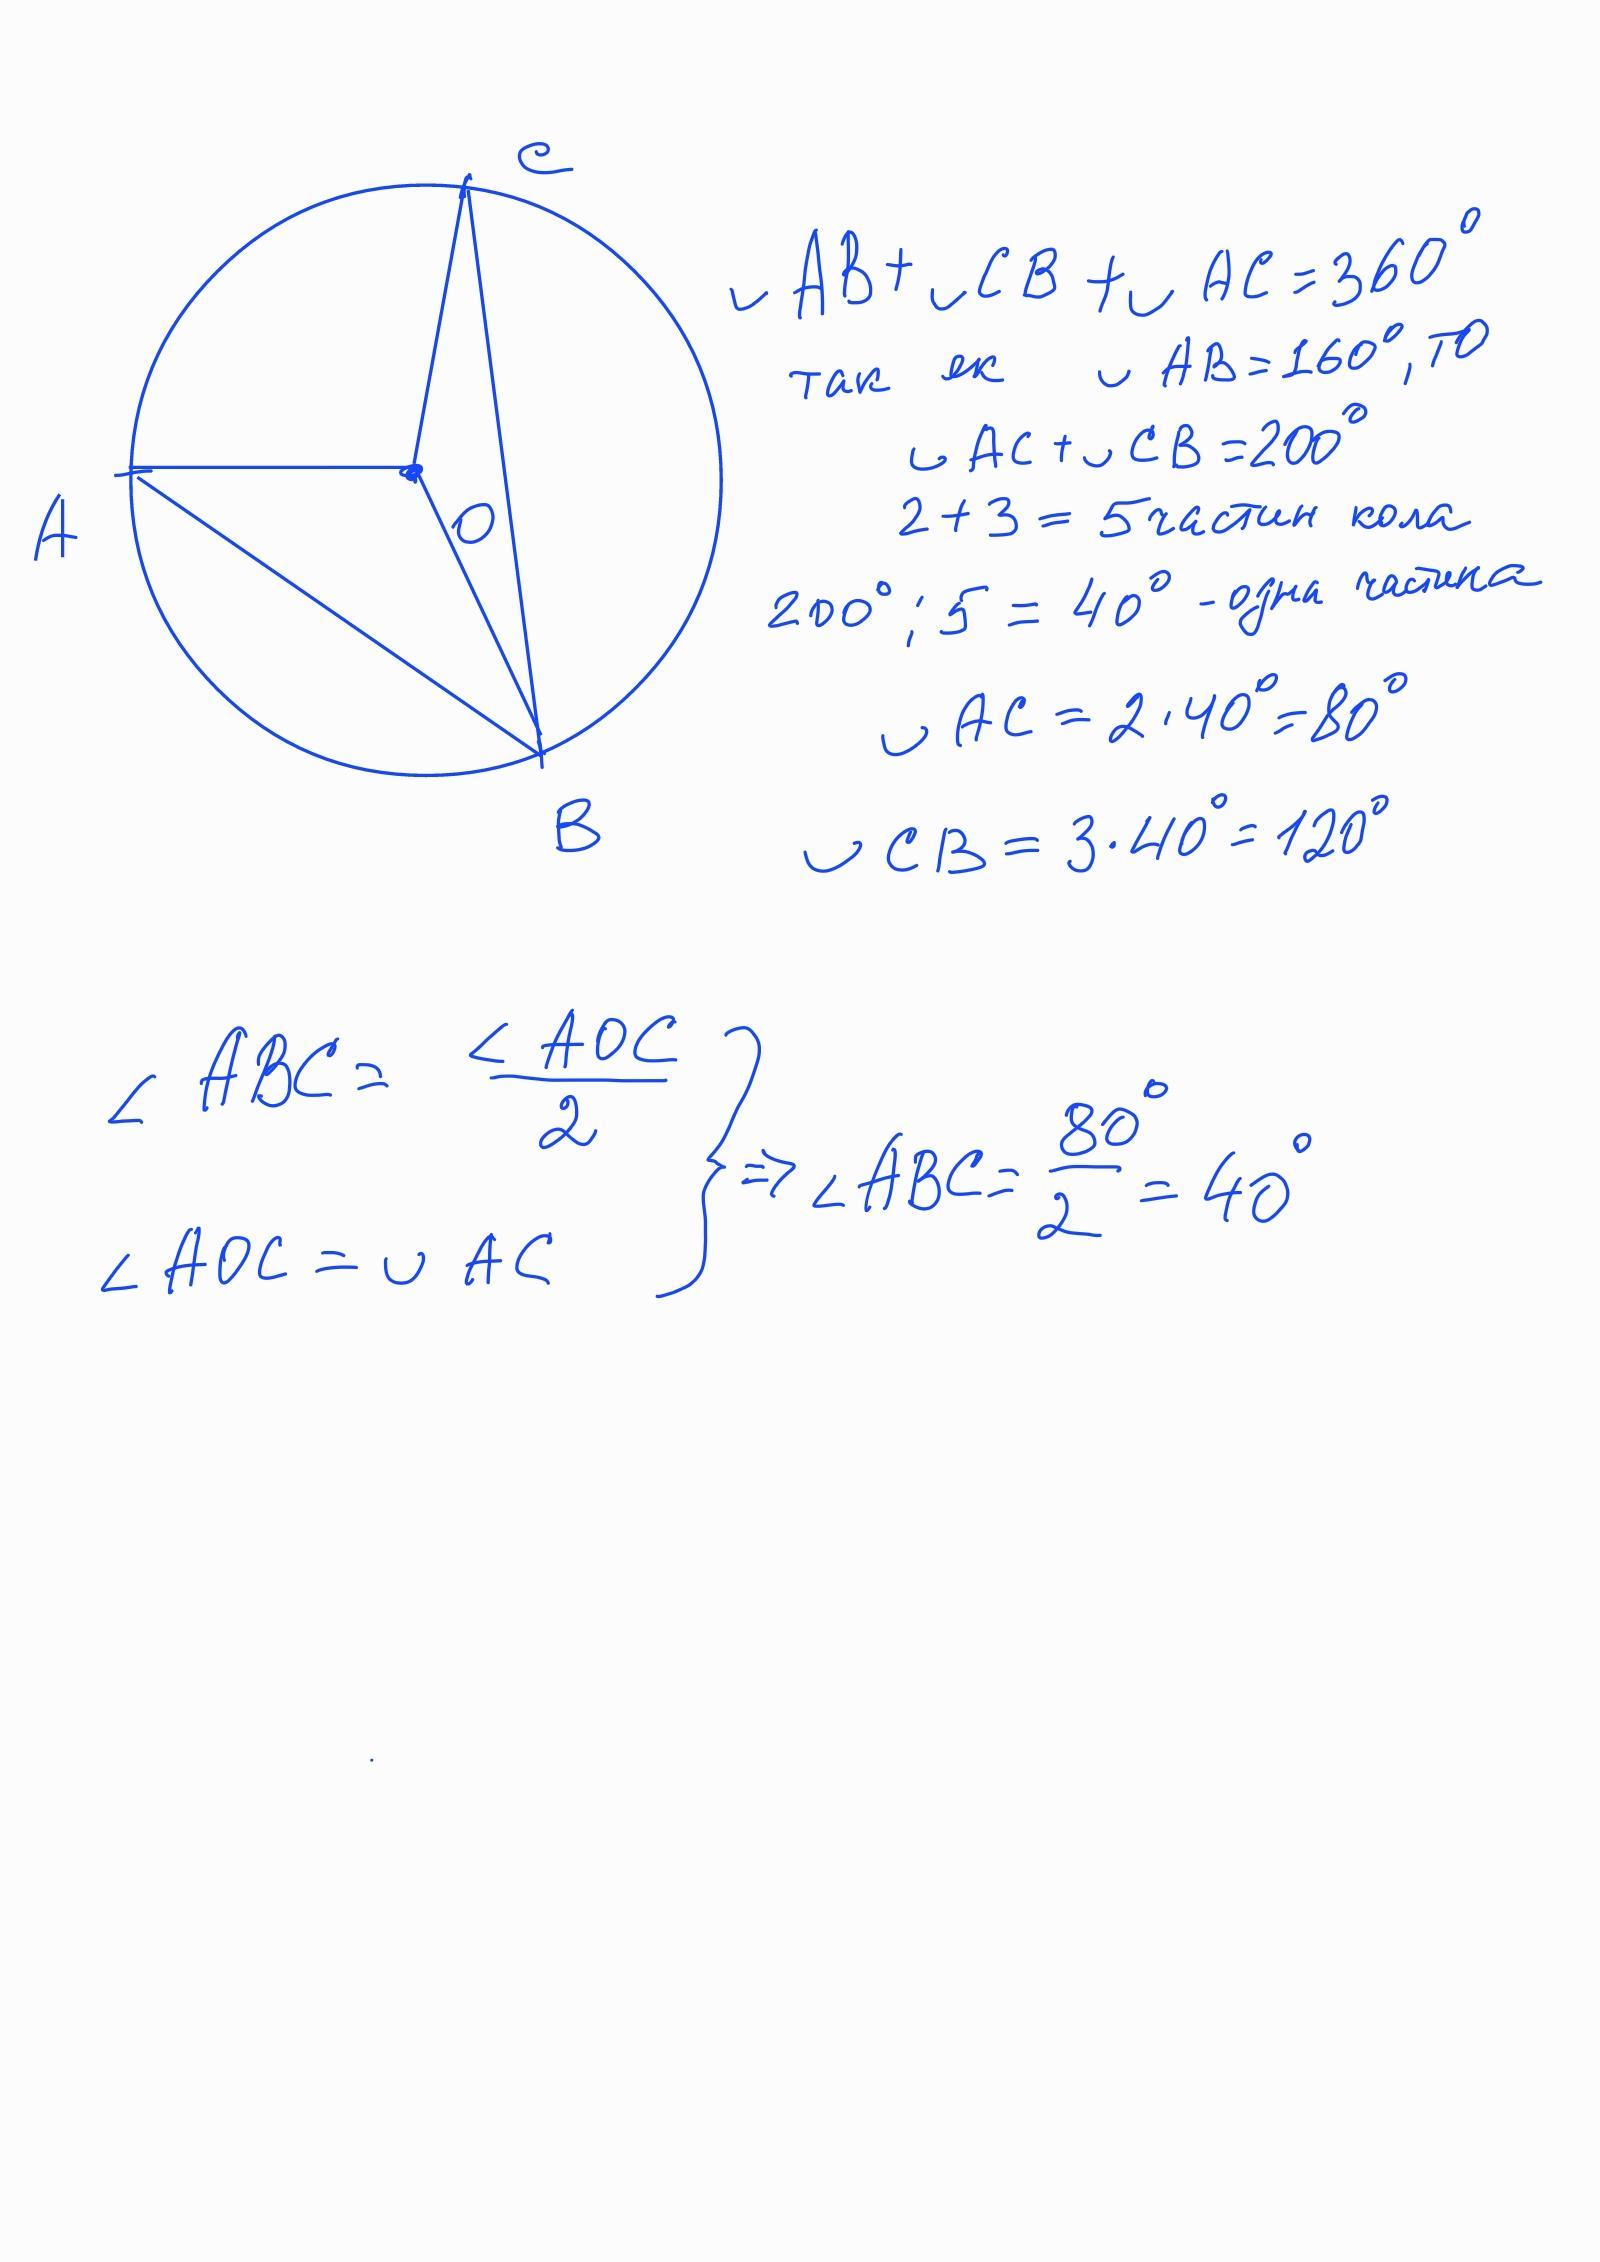 C
A
O
B
◡ AB + ◡ CB + ◡ AC = 360°
так як ◡ AB = 160°, то
◡ AC + ◡ CB = 200°
2 + 3 = 5 частин кола
200° : 5 = 40° - одна частина
◡ AC = 2 · 40° = 80°
◡ CB = 3 · 40° = 120°
∠ ABC = ∠ AOC / 2
∠ AOC = ◡ AC
} => ∠ ABC = 80° / 2 = 40°